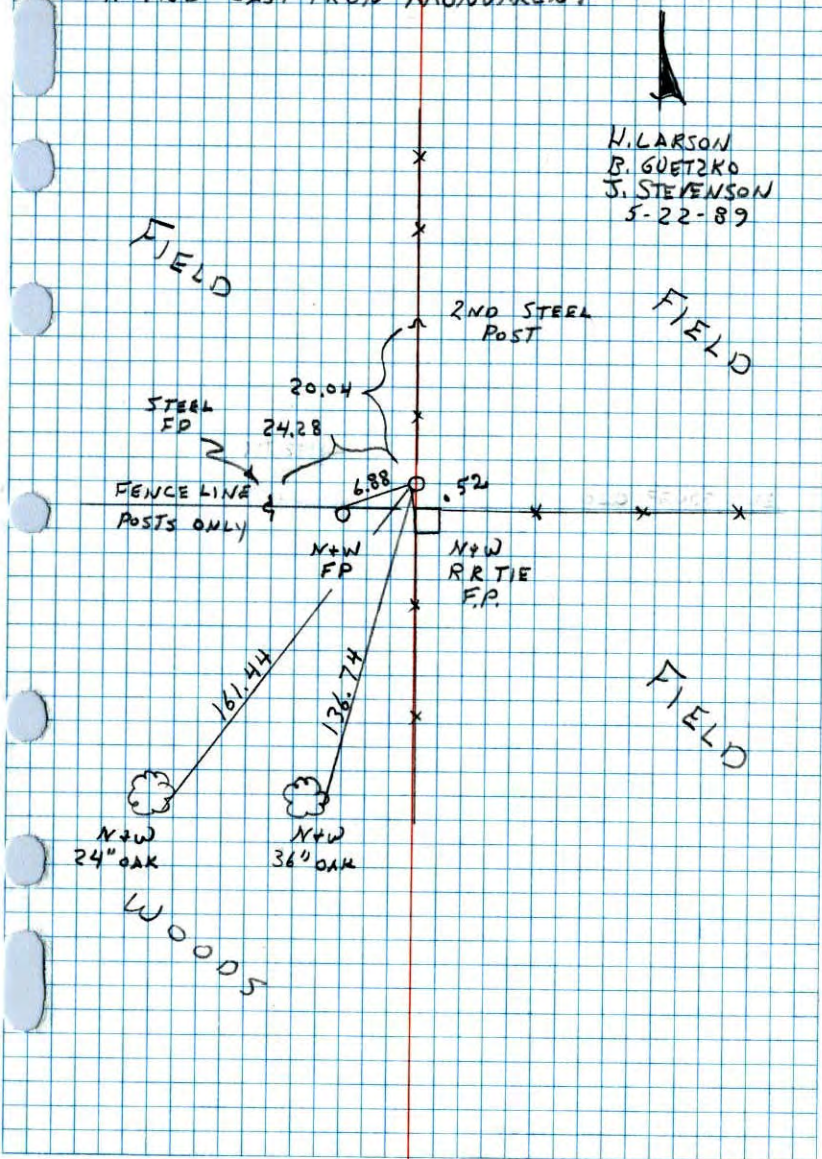 CAST IRON MONUMENT.
H. LARSON
B. GUETZKO
J. STEVENSON
5-22-89
FIELD
FIELD
2ND STEEL
POST
20.04
STEEL
FP
24.28
6.88
.52
FENCE LINE
POSTS ONLY
N+W
FP
N+W
RR TIE
F.P.
161.44
136.74
FIELD
N+W
24" OAK
N+W
36" OAK
WOODS